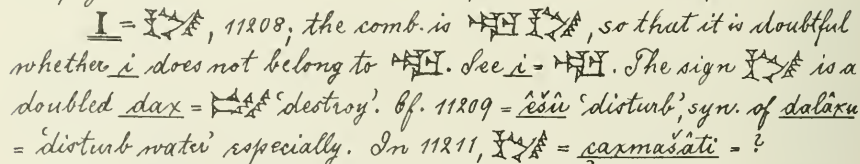 I = , 11208; the comb. is , so that it is doubtful
whether i does not belong to . See i = . The sign is a
doubled dax = 'destroy'. Cf. 11209 = êšû 'disturb', syn. of dalâxu
= 'disturb water' especially. In 11211, = saxmašâti = ?